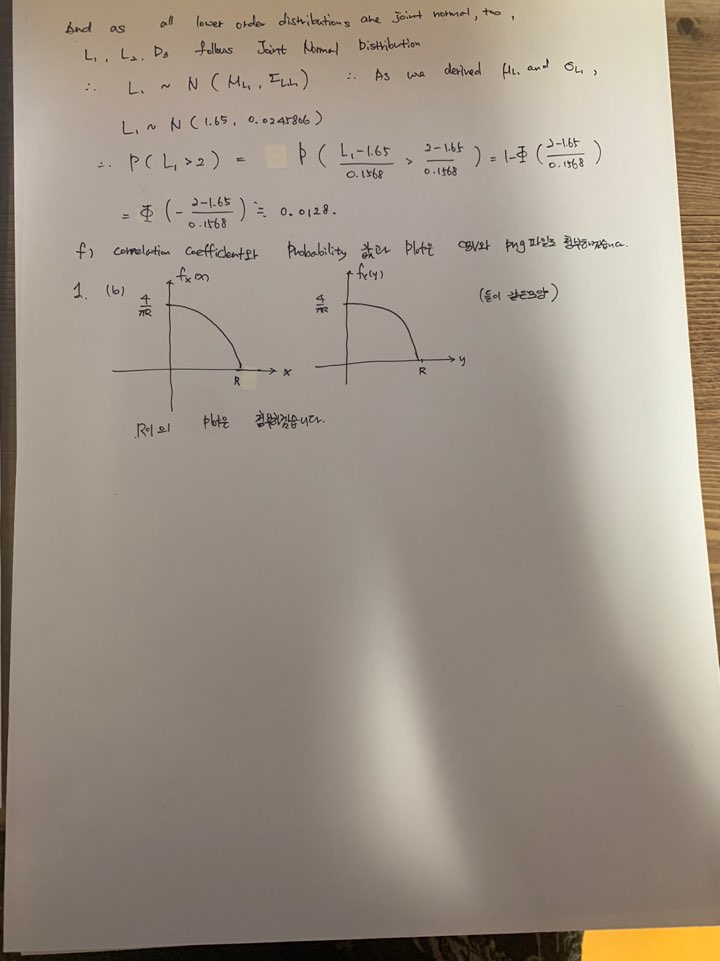 And as all lower order distributions are joint normal, too,
L₁, L₂, D₃ follows Joint Normal Distribution
∴ L₁ ~ N ( μ_L₁, Σ_L₁L₁ ) ∴ As we derived μ_L₁ and σ_L₁,
L₁ ~ N ( 1.65, 0.0245806 )
∴ P( L₁ > 2 ) = P ( (L₁-1.65)/0.1568 > (2-1.65)/0.1568 ) = 1-Φ ( (2-1.65)/0.1568 )
= Φ ( - (2-1.65)/0.1568 ) ≒ 0.0128.
f) Correlation Coefficient와 Probability 결과 Plot은 CSV와 png 파일로 첨부하겠습니다.
1. (b) f_x(x) f_x(y) (둘이 같은모양)
4/πR 4/πR
R x R y
R의 plot은 첨부하겠습니다.